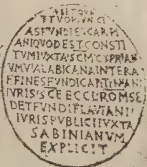 ASFVNDIE CARPI
ANIQVODEST CONSTI
TVMIVXTA SCMCYPRIAN
VMVALABICANAINTERA
FFINESFVNDICAPITINIANI
IVRIS SCE ECCL ROMSE
DETFVNDIFLAVIANI
IVRISPVBLICI IVXTA
SABINIANVM
EXPLICIT